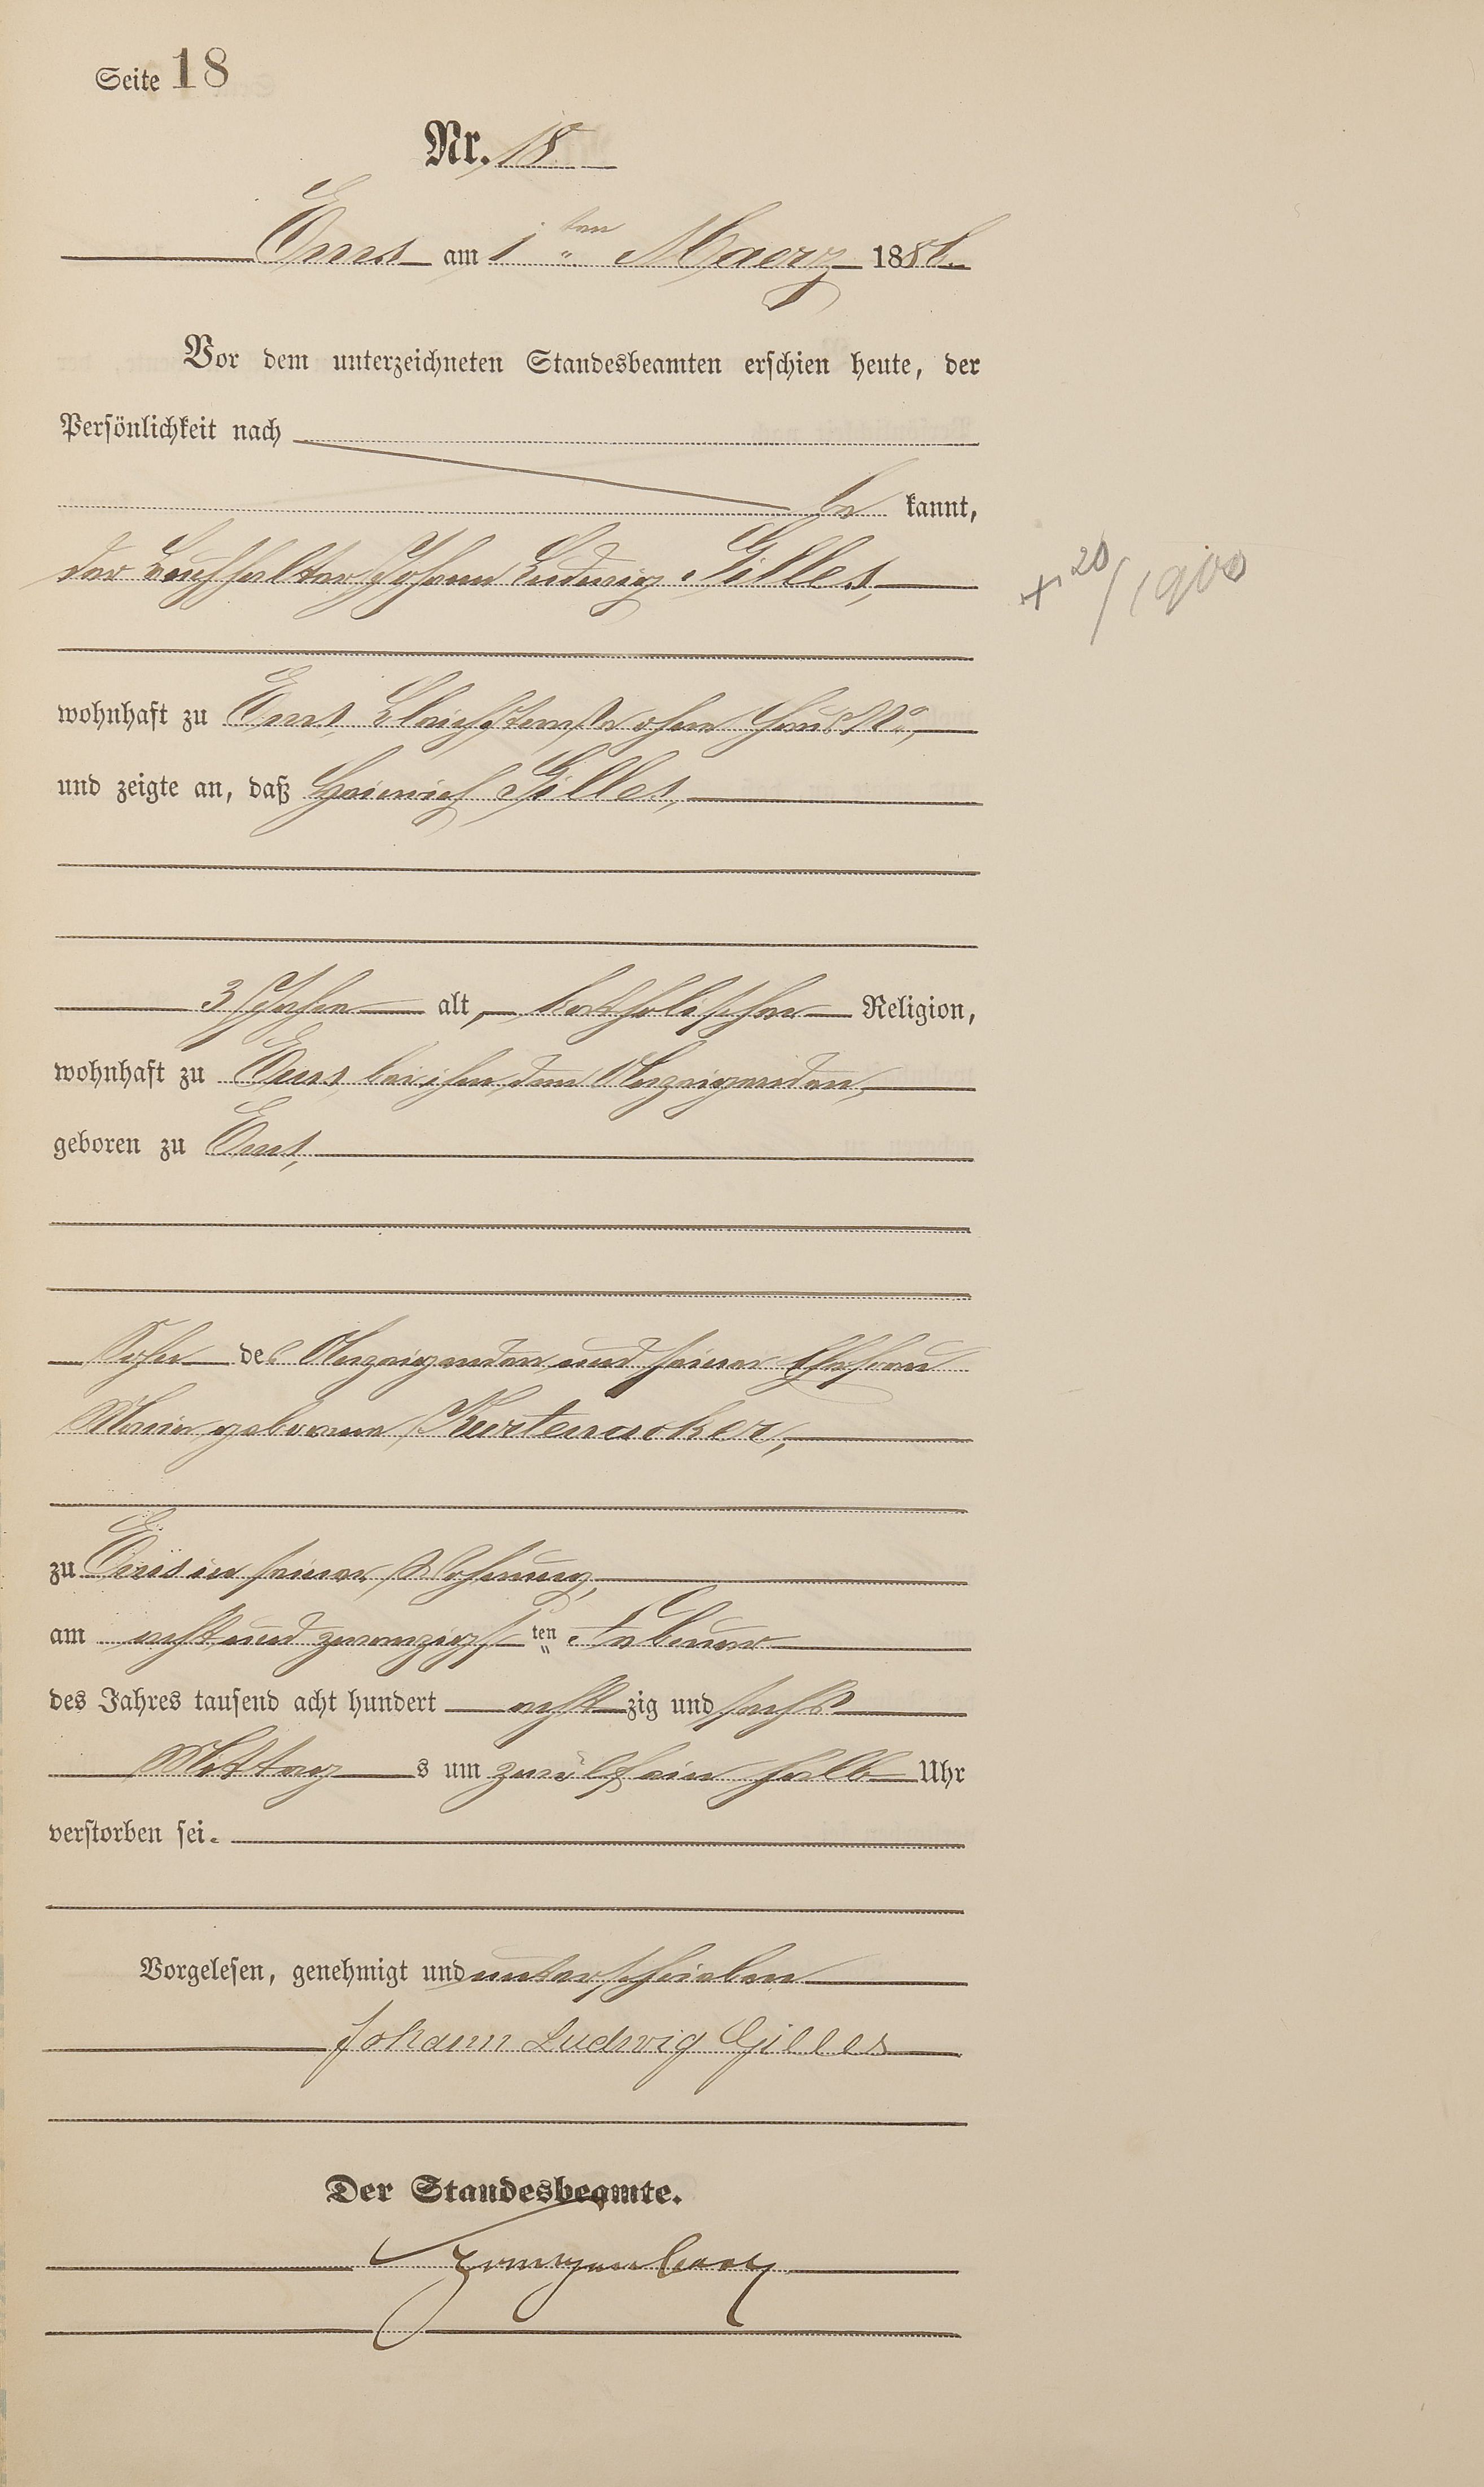 Seite 18
Nr. 18
Ems am 1ten Maerz 1886.
Vor dem unterzeichneten Standesbeamten erschien heute, der
Persönlichkeit nach
be kannt,
der Buchhalter Johann Ludwig Gilles,
+ 20/1900
wohnhaft zu Ems, Bleichstraße ohne Haus No,
und zeigte an, daß Heinrich Gilles,
3 Jahre alt, katholischer Religion,
wohnhaft zu Ems bei ihm, dem Anzeigenden,
geboren zu Ems,
Sohn des Anzeigenden und seiner Ehefrau
Maria geborene Kurtenacker,
zu Ems in seiner Wohnung,
am acht und zwanzigsten Februar
des Jahres tausend acht hundert acht zig und sechs
Mittag s um zwölf ein halb Uhr
verstorben sei.
Vorgelesen, genehmigt und unterschrieben
Johann Ludwig Gilles
Der Standesbeamte.